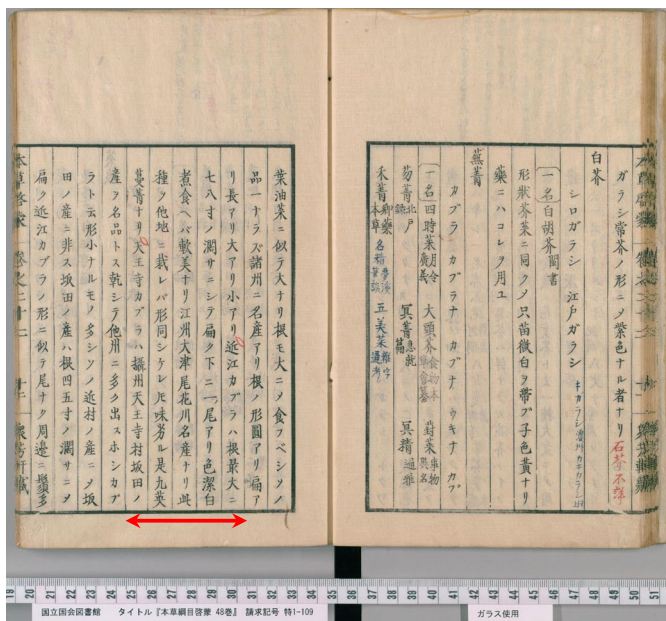 ガラシ常芥ノ形ニメ紫色ナル者ナリ
白芥
シロガラシ 江戸ガラシ
一名白胡芥閩書
形狀芥菜ニ同クメ只苗微白ヲ帶ブ子色黄ナリ
藥ニハコレヲ用ユ
蕪菁
カブラ カブラナ カブナ ウキナ カブ
一名四時菜 大頭芥 葑菜
芴菁 蓂菁 蓂精
禾菁 五美菜
葉油菜ニ似テ大ナリ根モ大ニメ食フベシソノ
品一ナラズ諸州ニ名産アリ根ノ形圓アリ扁ア
リ長アリ大アリ小アリ近江カブラハ根最大ニ
七八寸ノ濶サニシテ扁ク下ニ一尾アリ色潔白
煮食ヘバ軟美ナリ江州大津尾花川名産ナリ此
種ヲ他地ニ栽レバ形同シケレ𪜈味劣ル是九英
蔓菁ナリ天王寺カブラハ攝州天王寺村坂田ノ
産ヲ名品トス乾シテ他州ニ多ク出スホシカブ
ラト云形小ナルモノ多シソノ近村ノ産ニメ坂
田ノ産ニ非ス坂田ノ産ハ根四五寸ノ濶サニメ
扁ク近江カブラノ形ニ似テ尾ナク周邉ニ鬚多
19 20 21 22 23 24 25 26 27 28 29 30 31 32 33 34 35 36 37 38 39 40 41 42 43 44 45 46 47 48 49 50 51
国立国会図書館 タイトル『本草綱目啓蒙 48巻』 請求記号 特1-109
ガラス使用